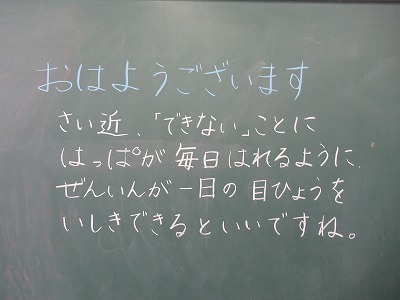 おはようございます
さい近、「できない」ことに
はっぱが毎日はれるように、
ぜんいんが一日の目ひょうを
いしきできるといいですね。